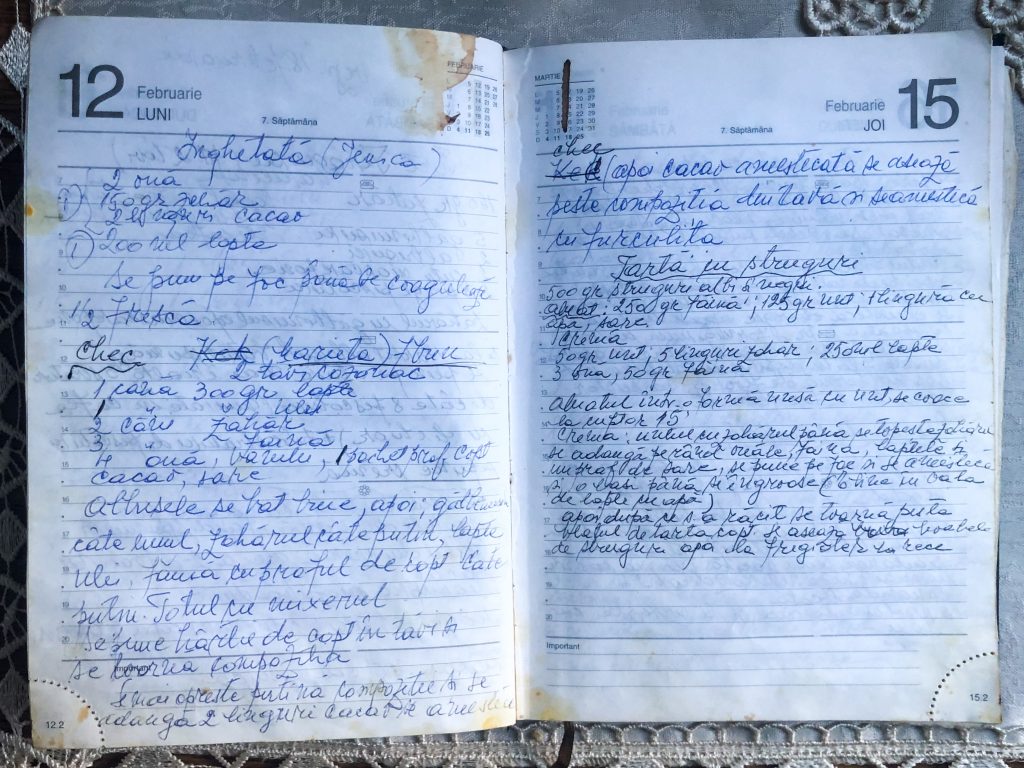 12 Februarie
LUNI
7. Săptămâna
FEBRUARIE
Inghetată (Jenica)
2 ouă
150 gr zahăr
2 linguri cacao
① 200 ml lapte
se pun pe foc până se coagulează
1/2 Frescă
chec Kek (Marieta) 7 bun
2 tăvi cozonac
1 cana 300 gr lapte
1 ulei
2 căni zahăr
3 " făină
4 ouă, vanilie, 1 pachet praf copt
cacao, sare
Albusele se bat bine, apoi, gălbenusu
câte unul, zahărul câte putin, lapte
ulei, făină cu praful de copt câte
putin. Totul cu mixerul
Se pune hârtie de copt în tăvi si
se toarna compozitia
Important
Se mai opreste putină compozitie si se
adaugă 2 linguri cacao si amestecă
12.2
MARTIE
Februarie 15
JOI
7. Săptămâna
chec
Kek (apoi cacao amestecată se asează
peste compozitia din tavă si se amestecă
cu furculita
Tartă cu struguri
500 gr struguri albi si negri.
aluat: 250 gr făină; 125 gr unt; 1 lingură cu
apă, sare.
Crema
50 gr unt, 5 linguri zahăr, 250 ml lapte
3 oua, 50 gr făină
aluatul într-o formă unsă cu unt, se coace
la cuptor 15'
Crema: untul cu zahărul până se topeste zahărul
se adaugă pe rând ouăle, făina, laptele si
un praf de sare, se pune pe foc si se amestecă
până se îngroase (bine in vas
de lapte cu apă)
apoi după ce s-a răcit se toarnă peste
blatul de tarta copt si aseaza boabele
de struguri apoi la frigider la rece
Important
15.2